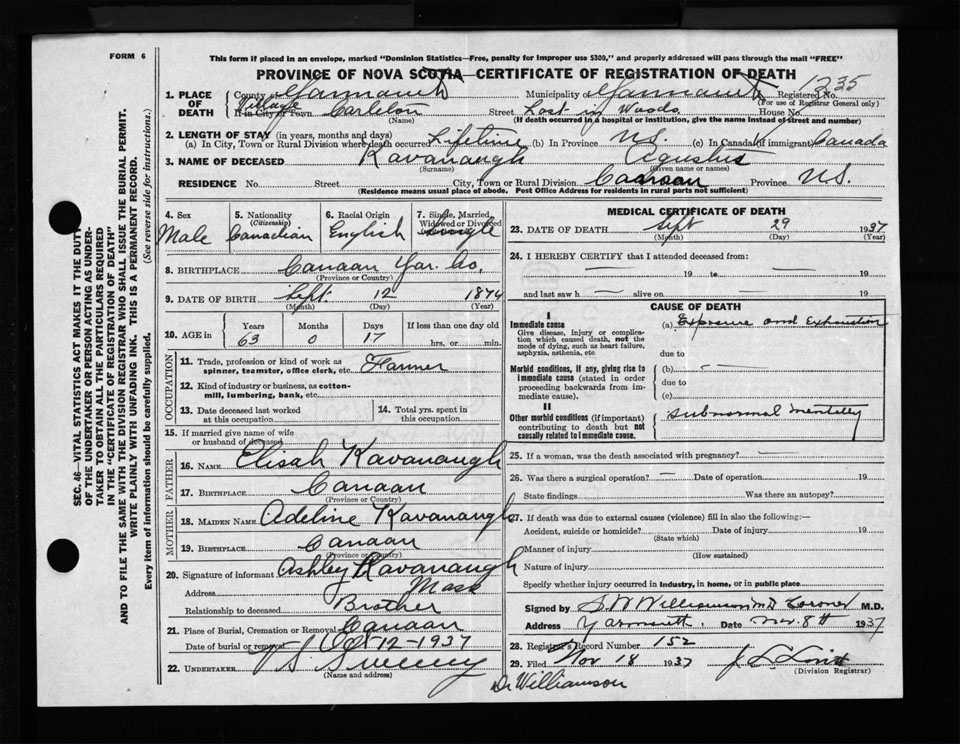 FORM 6
This form if placed in an envelope, marked "Dominion Statistics—Free, penalty for improper use $300, and properly addressed will pass through the mail "FREE"
PROVINCE OF NOVA SCOTIA—CERTIFICATE OF REGISTRATION OF DEATH
1235
1. PLACE OF DEATH County of Yarmouth Municipality of Yarmouth Registered No.
(For use of Registrar General only)
Village If in City or Town Carleton Street Lost in Woods House No.
(Name) (If death occurred in a hospital or institution, give the name instead of street and number)
2. LENGTH OF STAY (in years, months and days)
(a) In City, Town or Rural Division where death occurred Lifetime (b) In Province N.S. (c) In Canada (if immigrant) Canada
3. NAME OF DECEASED Kavanaugh Agustus
(Surname) (Given name or names)
RESIDENCE No. Street City, Town or Rural Division Canaan Province N.S.
(Residence means usual place of abode. Post Office Address for residents in rural parts not sufficient)
4. Sex Male
5. Nationality (Citizenship) Canadian
6. Racial Origin English
7. Single, Married, Widowed or Divorced Single
8. BIRTHPLACE Canaan Yar. Co.
(Province or Country)
9. DATE OF BIRTH Sept. 12 1874
(Month) (Day) (Year)
10. AGE in Years 63 Months 0 Days 17 If less than one day old hrs. or min.
OCCUPATION
11. Trade, profession or kind of work as spinner, teamster, office clerk, etc. Farmer
12. Kind of industry or business, as cotton-mill, lumbering, bank, etc.
13. Date deceased last worked at this occupation
14. Total yrs. spent in this occupation
15. If married give name of wife or husband of deceased
FATHER
16. NAME Elisah Kavanaugh
17. BIRTHPLACE Canaan
(Province or Country)
MOTHER
18. MAIDEN NAME Adeline Kavanaugh
19. BIRTHPLACE Canaan
(Province or Country)
20. Signature of informant Ashley Kavanaugh
Address Mass
Relationship to deceased Brother
21. Place of Burial, Cremation or Removal Canaan
Date of burial or removal Oct 12-1937
22. UNDERTAKER V S Sweeney
(Name and address)
MEDICAL CERTIFICATE OF DEATH
23. DATE OF DEATH Sept 29 1937
(Month) (Day) (Year)
24. I HEREBY CERTIFY that I attended deceased from:
— 19 to — 19
and last saw h — alive on — 19
CAUSE OF DEATH
I
Immediate cause (a) Exposure and Exhaustion
Give disease, injury or complication which caused death, not the mode of dying, such as heart failure, asphyxia, asthenia, etc.
due to
Morbid conditions, if any, giving rise to immediate cause (stated in order proceeding backwards from immediate cause). (b) —
due to
(c)
II
Other morbid conditions (if important) contributing to death but not causally related to immediate cause. Subnormal mentally
25. If a woman, was the death associated with pregnancy? —
26. Was there a surgical operation? — Date of operation 19
State findings Was there an autopsy?
27. If death was due to external causes (violence) fill in also the following:—
Accident, suicide or homicide? Date of injury 19
(State which)
Manner of injury
(How sustained)
Nature of injury
Specify whether injury occurred in industry, in home, or in public place
Signed by S. W Williamson MD Coroner M.D.
Address Yarmouth, Date Nov. 8th 1937
28. Registrar's Record Number 152
29. Filed Nov 18 1937
(Division Registrar)
Dr Williamson
SEC. 46—VITAL STATISTICS ACT MAKES IT THE DUTY
OF THE UNDERTAKER OR PERSON ACTING AS UNDER-
TAKER TO OBTAIN ALL THE PARTICULARS REQUIRED
IN THE "CERTIFICATE OF REGISTRATION OF DEATH"
AND TO FILE THE SAME WITH THE DIVISION REGISTRAR WHO SHALL ISSUE THE BURIAL PERMIT.
WRITE PLAINLY WITH UNFADING INK. THIS IS A PERMANENT RECORD.
Every item of information should be carefully supplied. (See reverse side for instructions.)